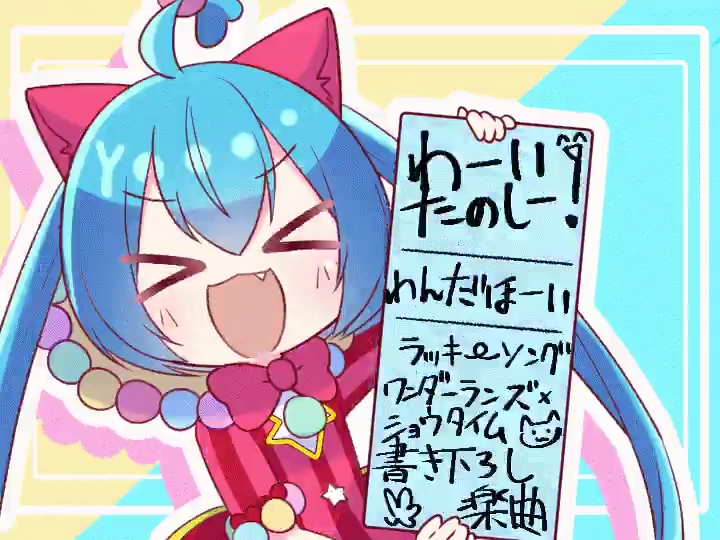 わーい!
たのしー!
わんだほーい
ラッキーソング
ワンダーランズ×
ショウタイム
書き下ろし
楽曲